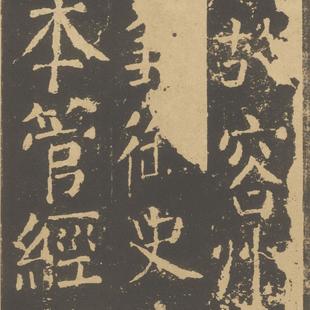 故容州
御史
本管經